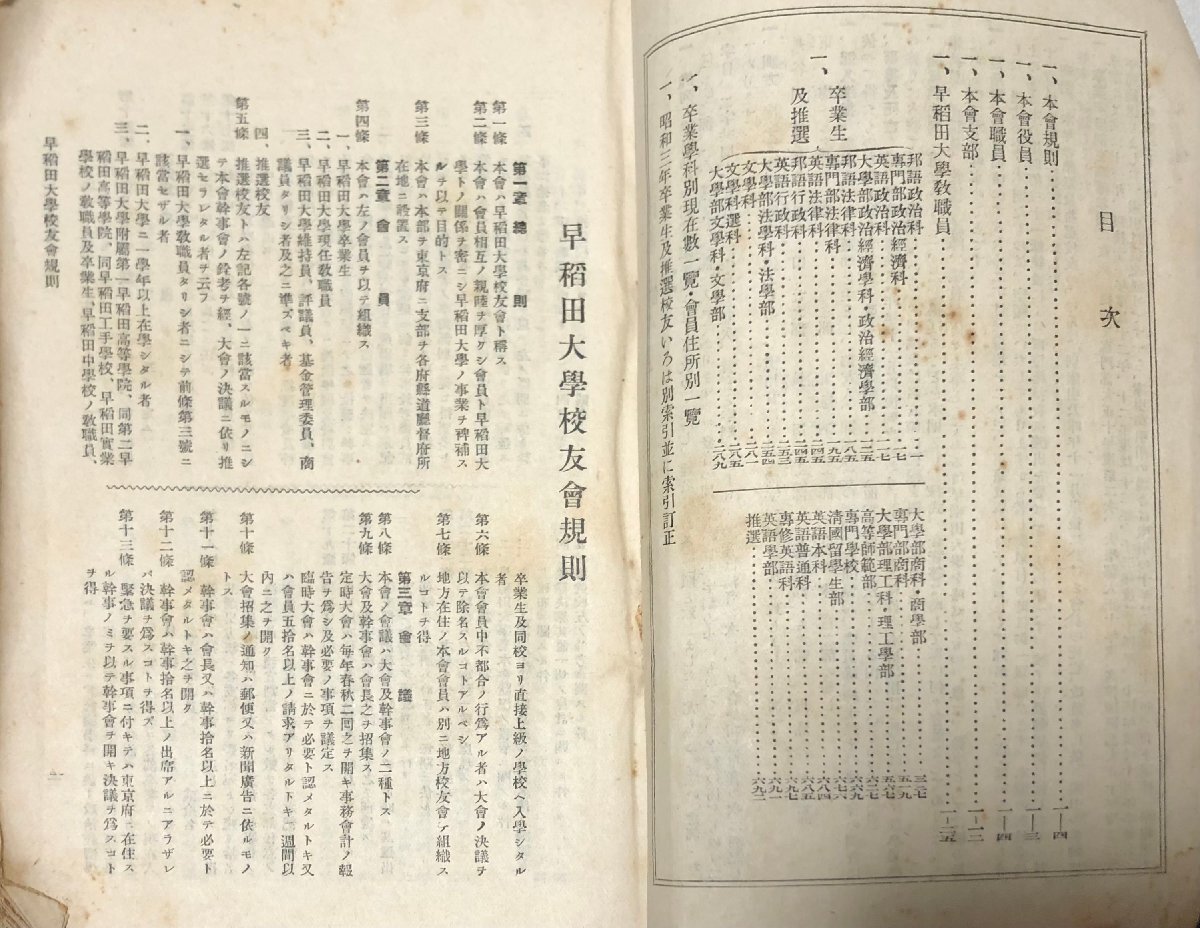 目次
一、本會規則 一―四
一、本會役員 一―三
一、本會職員 一―四
一、本會支部 一―一二
一、早稻田大學敎職員 一―二五
一、卒業生及推選
邦語政治科 一
專門部政治經濟科 七
英語政治科 一七
大學部政治經濟學科・政治經濟學部 二五
邦語法律科 八五
專門部法律科 九五
英語法律科
邦語行政科
英語行政科
大學部法學科・法學部
文學科
文學科選科
大學部文學科・文學部 二八九
大學部商科・商學部 三二七
專門部商科 五一九
大學部理工科・理工學部 五六七
高等師範部 六二七
專門學校 六六九
淸國留學生部 六七六
英語本科 六八四
英語普通科 六八五
專修英語科 六九七
英語學部 六九一
推選 六九二
一、卒業學科別現在數一覽・會員住所別一覽
一、昭和三年卒業生及推選校友いろは別索引並に索引訂正
早稻田大學校友會規則
第一章 總則
第一條 本會ハ早稻田大學校友會ト稱ス
第二條 本會ハ會員相互ノ親睦ヲ厚クシ會員ト早稻田大
學トノ關係ヲ密ニシ早稻田大學ノ事業ヲ裨補ス
ルヲ以テ目的トス
第三條 本會ハ本部ヲ東京府ニ支部ヲ各府縣道廳督府所
在地ニ設置ス
第二章 會員
第四條 本會ハ左ノ會員ヲ以テ組織ス
一、早稻田大學卒業生
二、早稻田大學現任敎職員
三、早稻田大學維持員、評議員、基金管理委員、商
議員タリシ者及之ニ準ズベキ者
四、推選校友
第五條 推選校友トハ左記各號ノ一ニ該當スルモノニシ
テ本會幹事會ノ銓考ヲ經、大會ノ決議ニ依リ推
選セラレタル者ヲ云フ
一、早稻田大學敎職員タリシ者ニシテ前條第三號ニ
該當セザル者
二、早稻田大學ニ一學年以上在學シタル者
三、早稻田大學附屬第一早稻田高等學院、同第二早
稻田高等學院、同早稻田工手學校、早稻田實業
學校ノ敎職員及卒業生、早稻田中學校ノ敎職員、
卒業生及同校ヨリ直接上級ノ學校ヘ入學シタル
者
第六條 本會會員中不都合ノ行爲アル者ハ大會ノ決議ヲ
以テ除名スルコトアルベシ
第七條 地方在住ノ本會會員ハ別ニ地方校友會ヲ組織ス
ルコトヲ得
第三章 會議
第八條 本會ノ會議ハ大會及幹事會ノ二種トス
第九條 大會及幹事會ハ會長之ヲ招集ス
定時大會ハ每年春秋二囘之ヲ開キ事務會計ノ報
告ヲ爲シ及必要ノ事項ヲ議定ス
臨時大會ハ幹事會ニ於テ必要ト認メタルトキ又
ハ會員五拾名以上ノ請求アリタルトキ二週間以
內ニ之ヲ開ク
第十條 大會招集ノ通知ハ郵便又ハ新聞廣告ニ依ルモノ
トス
第十一條 幹事會ハ會長又ハ幹事拾名以上ニ於テ必要ト
認メタルトキ之ヲ開ク
第十二條 幹事會ハ幹事拾名以上ノ出席アルニアラザレ
バ決議ヲ爲スコトヲ得ズ
第十三條 緊急ヲ要スル事項ニ付キテハ東京府ニ在住ス
ル幹事ノミヲ以テ幹事會ヲ開キ決議ヲ爲スコト
ヲ得
早稻田大學校友會規則
一